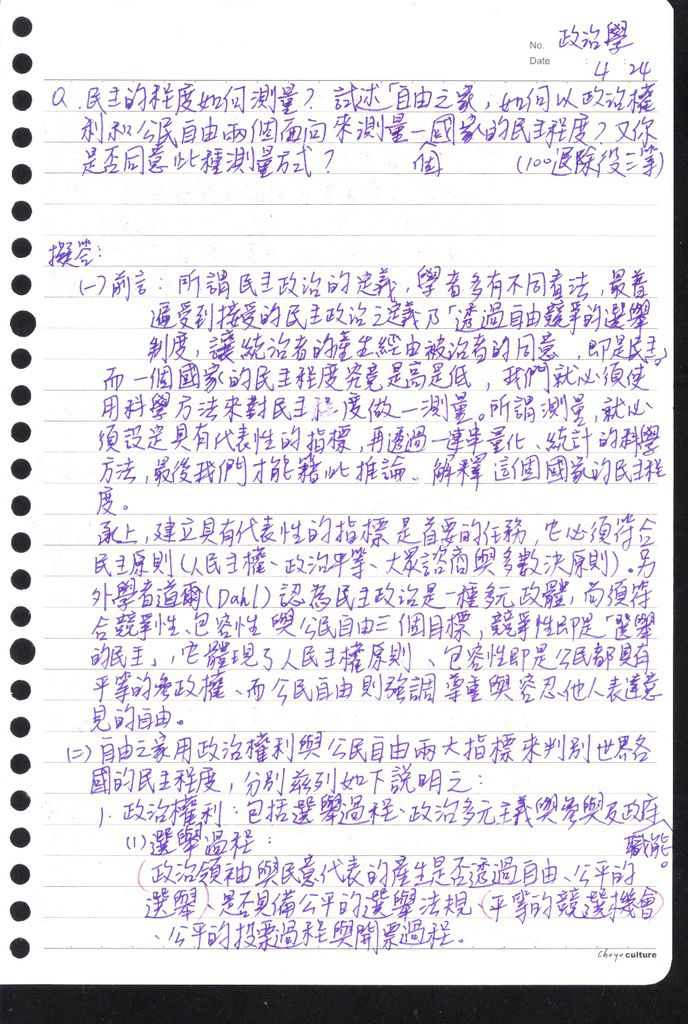 No. 政治學
Date 4 24
Q. 民主的程度如何測量？試述「自由之家」如何以政治權
利和公民自由兩個面向來測量一國家的民主程度？又你
是否同意此種測量方式？ 個 (100退除役三等)
擬答：
(一) 前言：所謂民主政治的定義，學者多有不同看法，最普
遍受到接受的民主政治之定義乃「透過自由競爭的選舉
制度，讓統治者的產生經由被治者的同意，即是民主」。
而一個國家的民主程度究竟是高是低，我們就必須使
用科學方法來對民主程度做一測量。所謂測量，就必
須設定具有代表性的指標，再透過一連串量化、統計的科學
方法，最後我們才能藉此推論、解釋這個國家的民主程
度。
承上，建立具有代表性的指標是首要的任務，它必須符合
民主原則(人民主權、政治平等、大眾諮商與多數決原則)。另
外學者道爾(Dahl)認為民主政治是一種多元政體，尚須符
合競爭性、包容性與公民自由三個目標，競爭性即是「選舉
的民主」，它體現了人民主權原則、包容性即是公民都具有
平等的參政權、而公民自由則強調尊重與容忍他人表達意
見的自由。
(二) 自由之家用政治權利與公民自由兩大指標來判別世界各
國的民主程度，分別茲列如下說明之：
1. 政治權利：包括選舉過程、政治多元主義與參與及政府
職能。
(1) 選舉過程：
政治領袖與民意代表的產生是否透過自由、公平的
選舉、是否具備公平的選舉法規、平等的競選機會
、公平的投票過程與開票過程。
culture